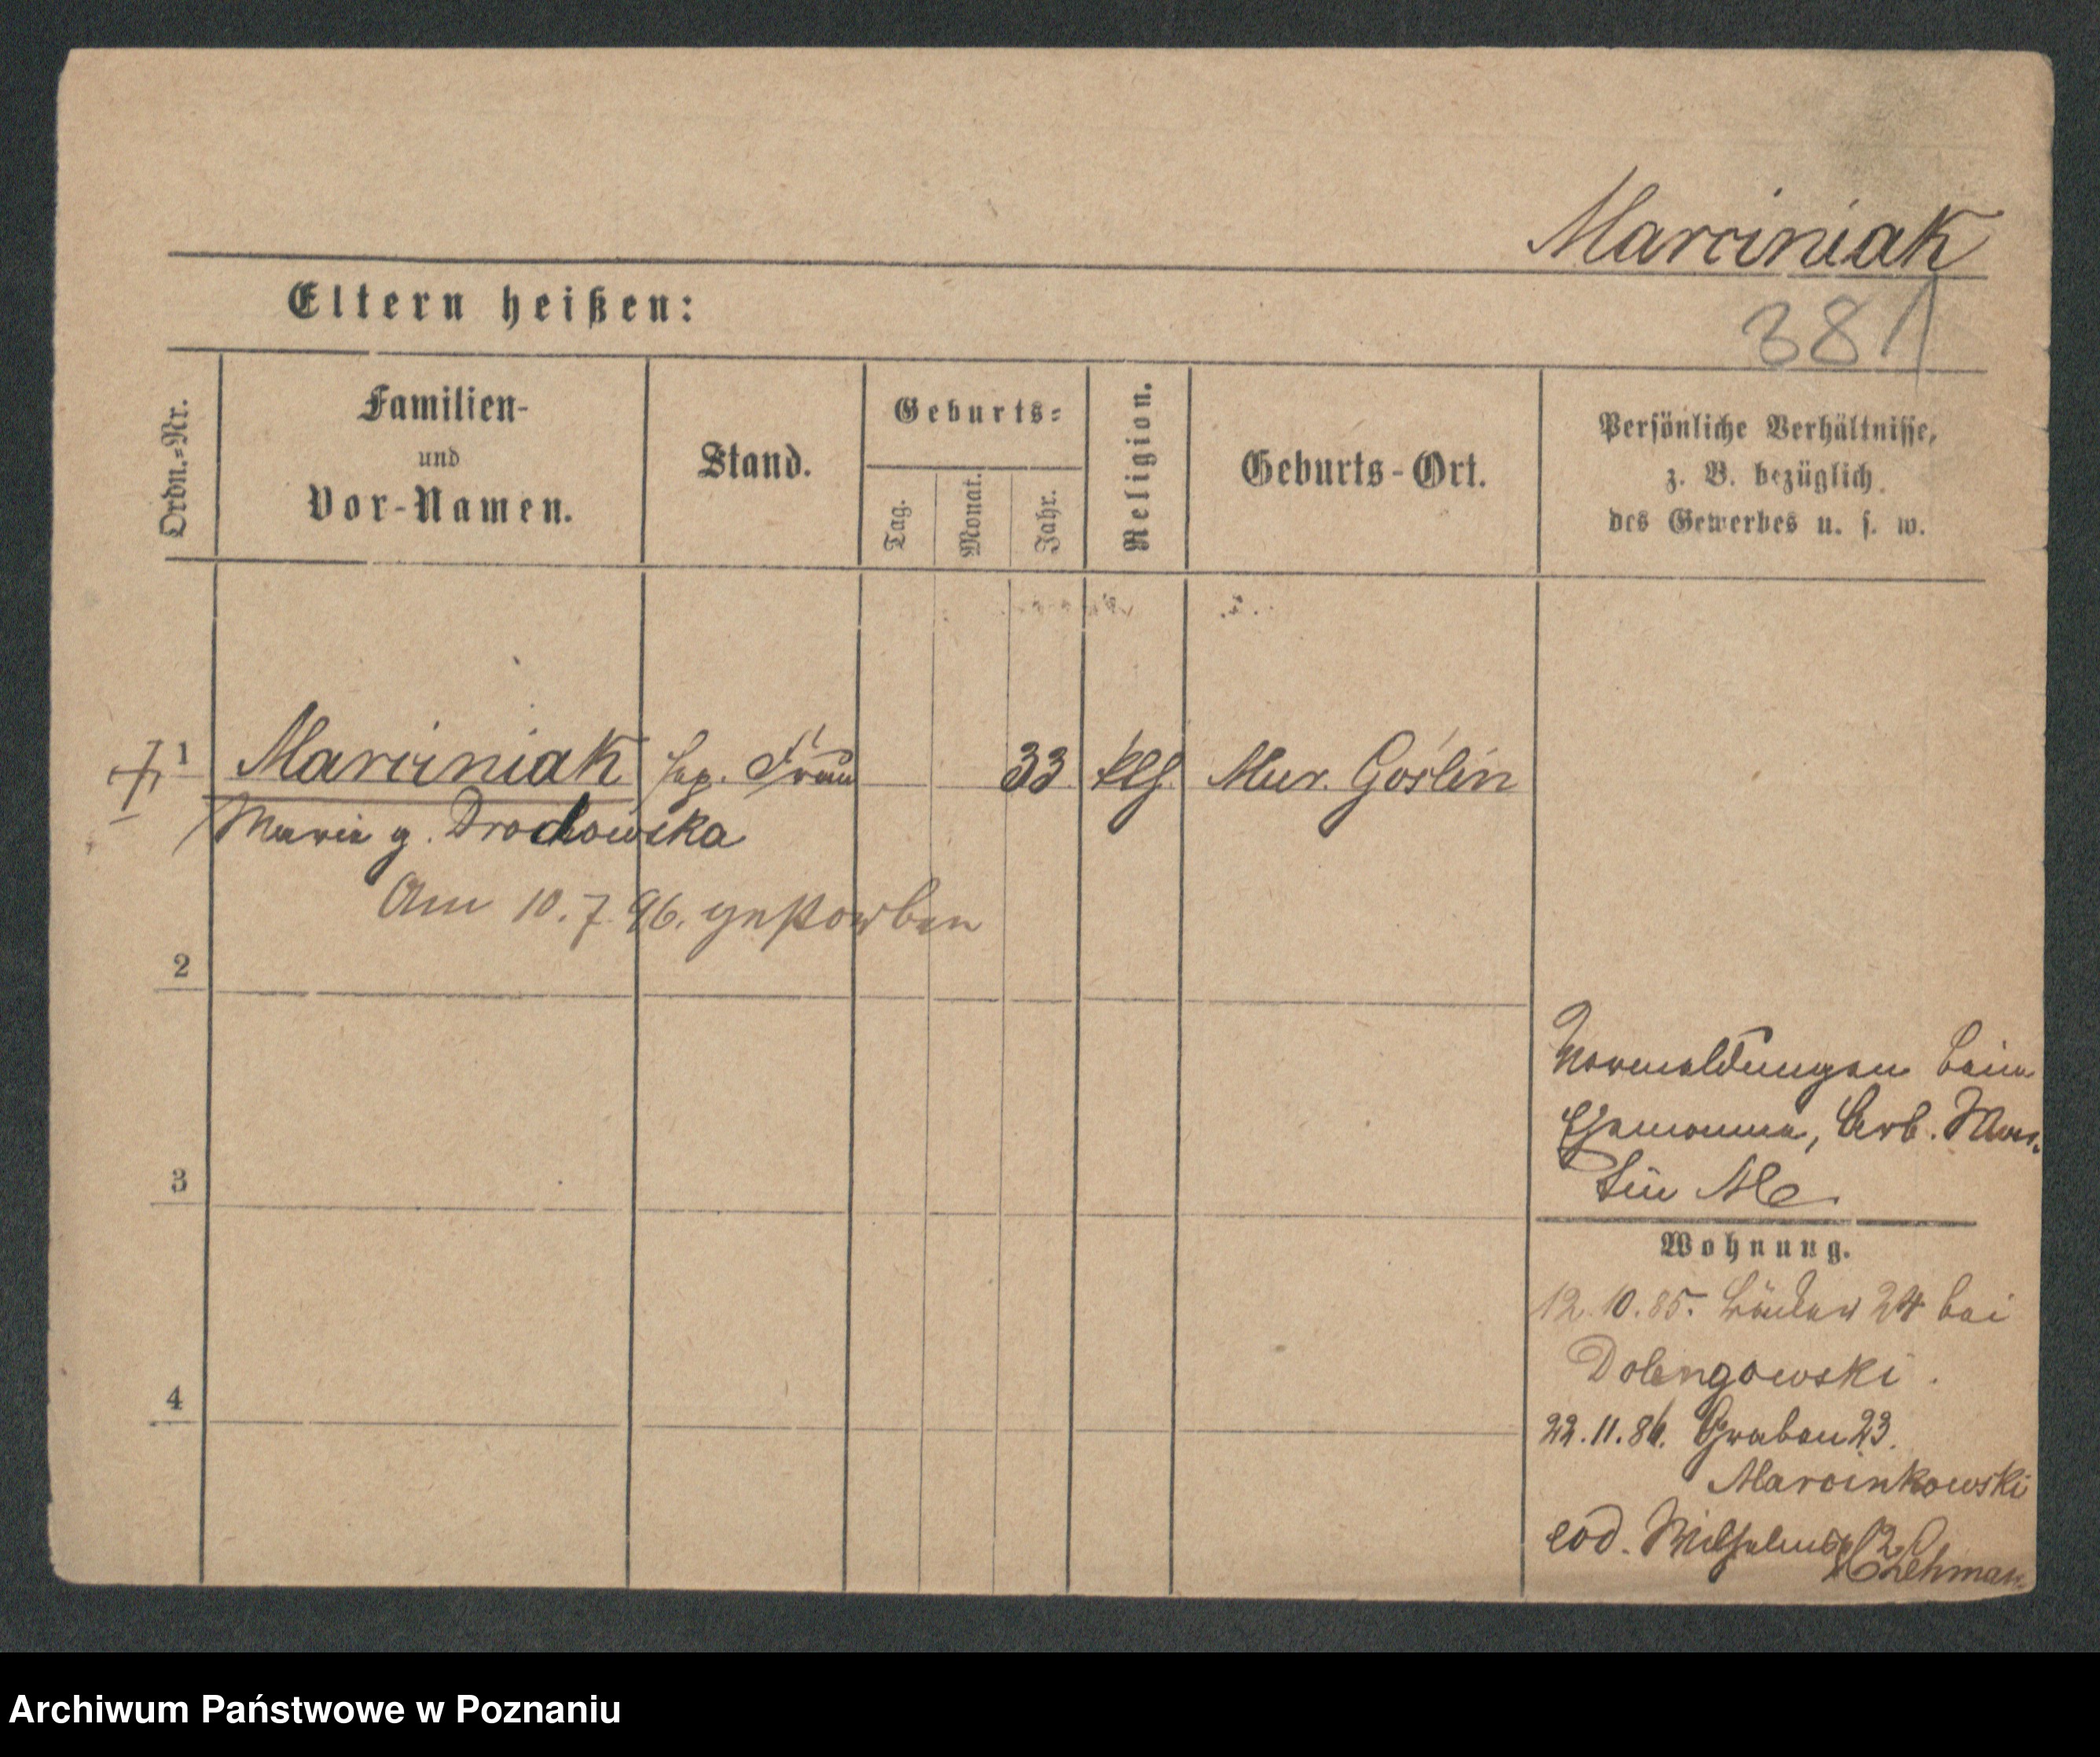 Marciniak
381
Eltern heißen:
Ordn.-Nr.
Familien-
und
Vor-Namen.
Stand.
Geburts-
Tag.
Monat.
Jahr.
Religion.
Geburts-Ort.
Persönliche Verhältnisse,
z. B. bezüglich
des Gewerbes u. s. w.
1 Marciniak sep. Frau 33 kth. Mur. Goślin
Maria g. Drochowska
Am 10.7.96. gestorben
2
3
4
Vormeldungen beim
Ehemanne, Arb. Mar-
tin M
Wohnung.
12.10.85. 24 bei
22.11.86. Graben 23.
Marcinkowski
eod. Wilhelmspl 2
Lehmann
Archiwum Państwowe w Poznaniu